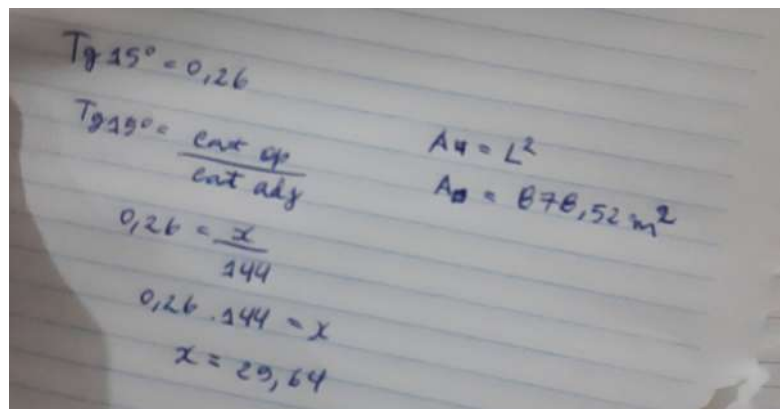 Tg 15° = 0,26
Tg 15° = cat op / cat adj
0,26 = x / 144
0,26 . 144 = x
x = 29,64
A = L²
A = 878,52 m²